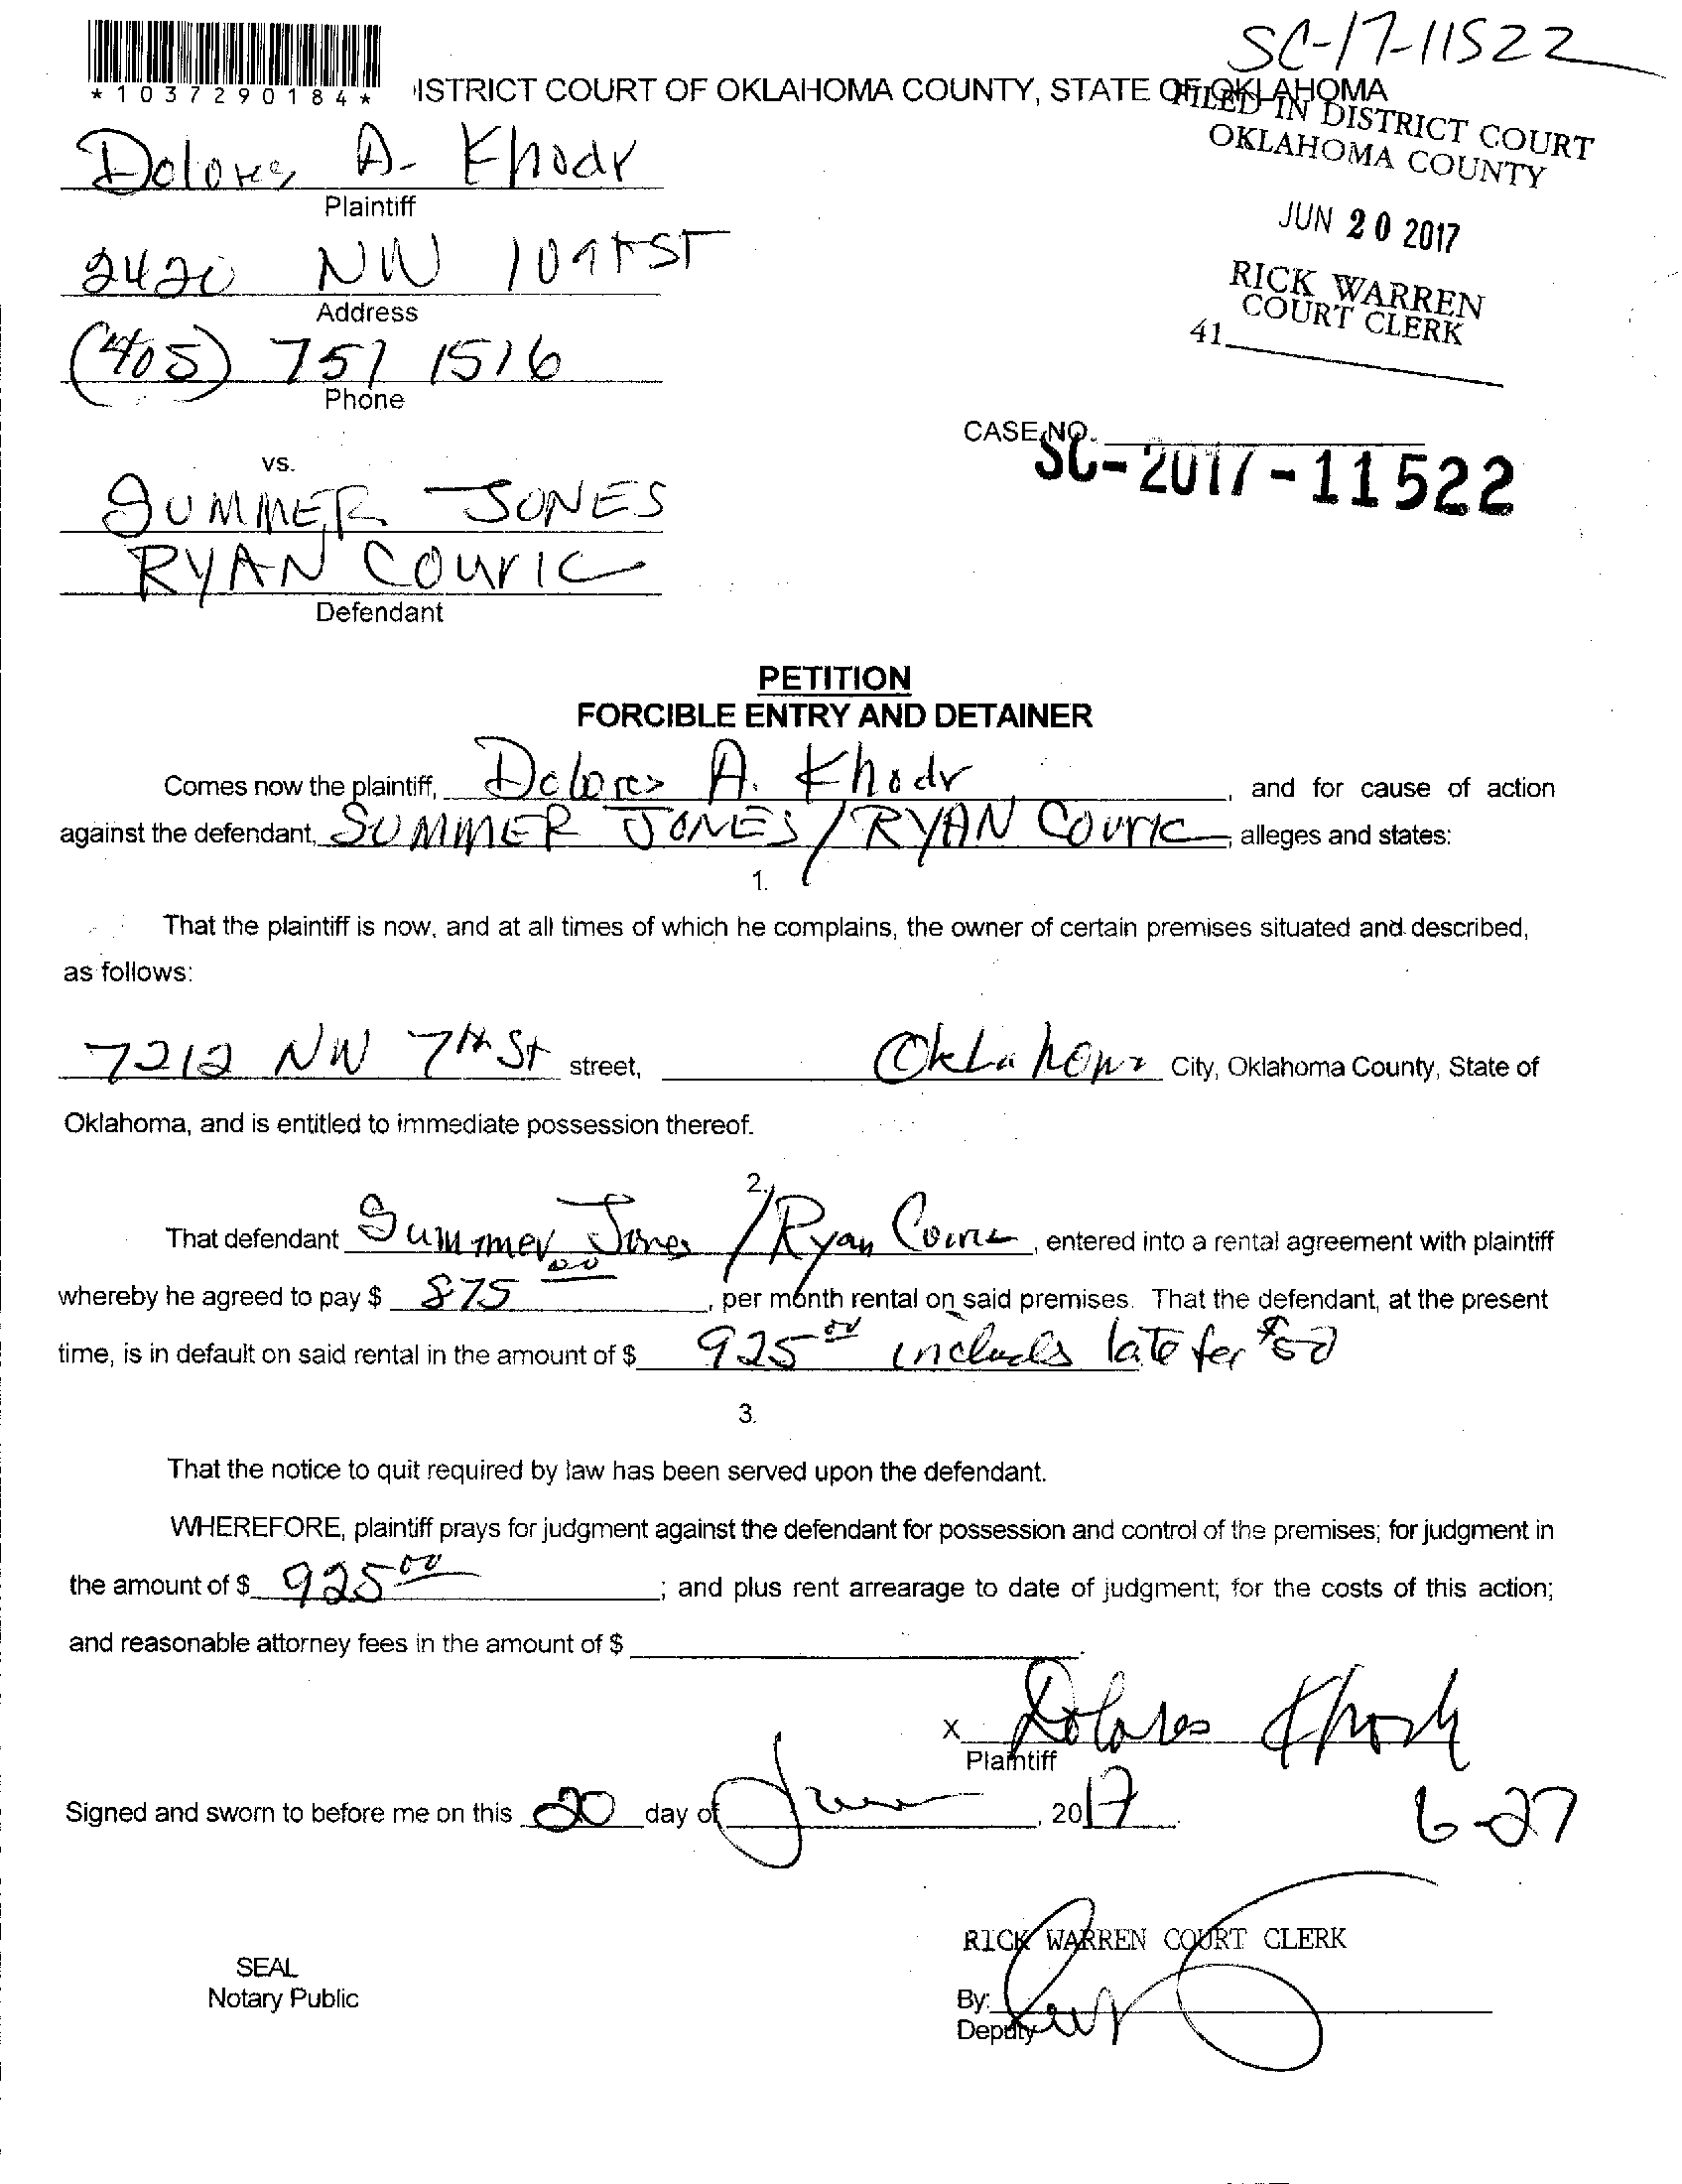 SC-17-11522
*1037290184*
ISTRICT COURT OF OKLAHOMA COUNTY, STATE OF OKLAHOMA
FILED IN DISTRICT COURT
OKLAHOMA COUNTY
JUN 20 2017
RICK WARREN
COURT CLERK
41
Dolores A. Khodr
Plaintiff
2420 NW 109th ST
Address
(405) 751 1516
Phone
CASE NO.
SC-2017-11522
vs.
SUMMER JONES
RYAN COURIC
Defendant
PETITION
FORCIBLE ENTRY AND DETAINER
Comes now the plaintiff, Dolores A. Khodr, and for cause of action
against the defendant, SUMMER JONES/RYAN COURIC, alleges and states:
1.
That the plaintiff is now, and at all times of which he complains, the owner of certain premises situated and described,
as follows:
7212 NW 7th St street, Oklahoma City, Oklahoma County, State of
Oklahoma, and is entitled to immediate possession thereof.
2.
That defendant Summer Jones / Ryan Couric, entered into a rental agreement with plaintiff
whereby he agreed to pay $ 875 00, per month rental on said premises. That the defendant, at the present
time, is in default on said rental in the amount of $ 925 00 includes late fee $50
3.
That the notice to quit required by law has been served upon the defendant.
WHEREFORE, plaintiff prays for judgment against the defendant for possession and control of the premises; for judgment in
the amount of $ 925 00; and plus rent arrearage to date of judgment; for the costs of this action;
and reasonable attorney fees in the amount of $
X Dolores Khodr
Plaintiff
Signed and sworn to before me on this 20 day of June, 2017.
6-27
RICK WARREN COURT CLERK
SEAL
Notary Public
By:
Deputy